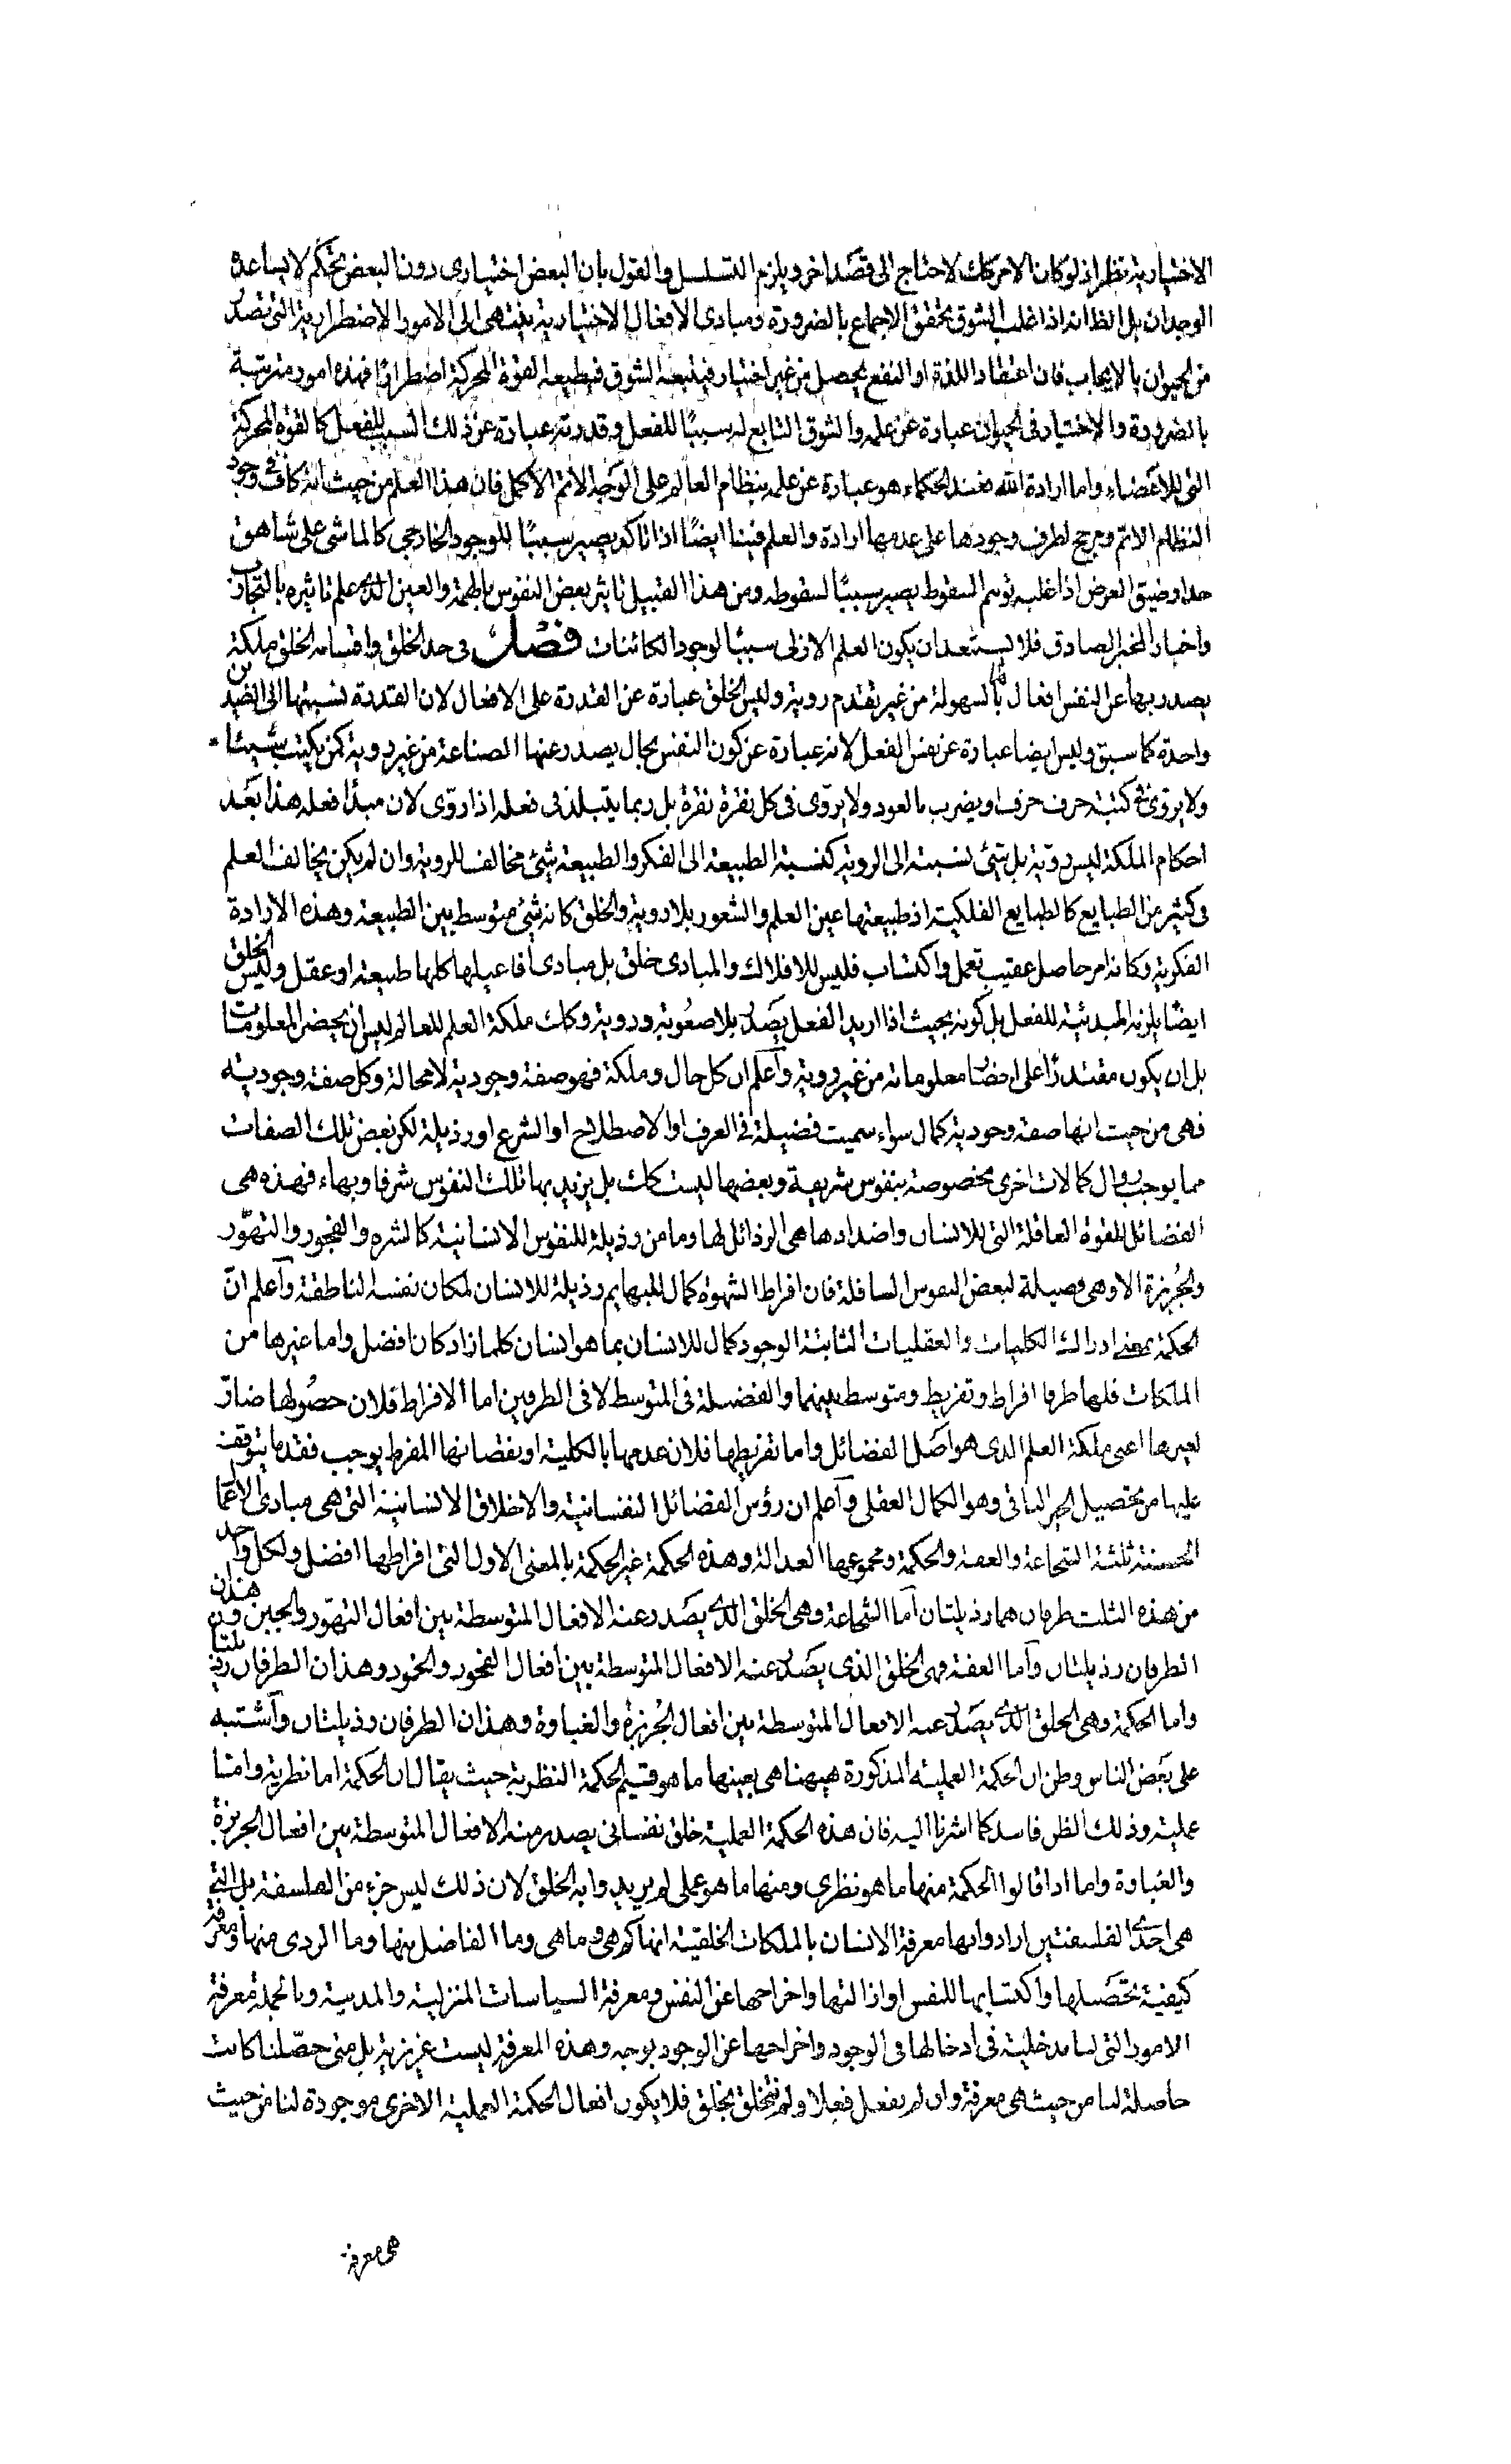 الاختيارية نظر اذ لو كان الامر كك لاحتاج الى قصد اخر ويلزم التسلسل والقول بان البعض اختيارى دون البعض تحكم لا يساعده
الوجدان بل الظ انه اذا غلب الشوق تحقق الاجماع بالضرورة ومبادى الافعال الاختيارية ينتهى الى الامور الاضطرارية التى تصدر
من الحيوان بالايجاب فان اعتقاد اللذة او النفع يحصل من غير اختيار فيتبعه الشوق فيطيعه القوة المحركة اضطرارا فهذه امور مترتبة
بالضرورة والاختيار فى الحيوان عبارة عن علمه والشوق التابع له سببًا للفعل وقدرته عبارة عن ذلك السبب للفعل كالقوة المحركة
التى للاعضاء واما ارادة الله فعند الحكماء هو عبارة عن علمه بنظام العالم على الوجه الاتم الاكمل فان هذا العلم من حيث انه كاف فى وجود
النظام الاتم ومرجح لطرف وجودها على عدمها ارادة والعلم فينا ايضًا اذا تاكد يصير سببًا للوجود الخارجى كالماشى على شاهق
جدار ضيق العرض اذا غلبه توهم السقوط يصير سببًا لسقوطه ومن هذا القبيل تاثير بعض النفوس بالهمة والعين الذى علم تاثيره بالتجارب
واخبار المخبر الصادق فلا يستبعد ان يكون العلم الازلى سببًا لوجود الكائنات فصل فى حد الخلق واقسامه الخلق ملكة
يصدر بها عن النفس افعال بالسهولة من غير تقدم روية وليس الخلق عبارة عن القدرة على الافعال لان القدرة نسبتها الى الضدين
واحدة كما سبق وليس ايضا عبارة عن نفس الفعل لانه عبارة عن كون النفس بحال يصدر عنها الصناعة من غير روية كمن يكتب شيئا
ولا يروّى فى كتبة حرف حرف او يضرب بالعود ولا يروّى فى كل نقرة نقرة بل ربما يتبلد فى فعله اذا روّى لان مبدا فعله هذا بعد
احكام الملكة ليس روّية بل شئ نسبته الى الروية كنسبة الطبيعة الى الفكر والطبيعة شئ مخالف للروية وان لم يكن يخالف العلم
فى كثير من الطبايع كالطبايع الفلكية اذ طبيعتها عين العلم والشعور بلا روية والخلق كانه شئ متوسط بين الطبيعة وهذه الارادة
الفكرية وكانه امر حاصل عقيب تعمل واكتساب فليس للافلاك والمبادى خلق بل مبادى افاعيلها كلها طبيعة او عقل وليس الخلق
ايضًا يلزمه المبدئية للفعل بل كونه بحيث اذا اريد الفعل يصدر بلا صعُوبة وروية وكك ملكة العلم للعالم ليس ان يحضر المعلومات
بل ان يكون مقتدرًا على احضار معلوماته من غير روية وآعلم ان كل حال وملكة فهو صفة وجودية لا محالة وكل صفة وجودية
فهى من حيث انها صفة وجودية كمال سواء سميت فضيلة فى العرف او الاصطلاح او الشرع او رذيلة لكن بعض تلك الصفات
مما يوجب زوال كمالات اخرى مخصوصة بنفوس شريفة وبعضها ليست كك بل يزيد بها تلك النفوس شرفا وبهاء فهذه هى
الفضائل للقوة العاقلة التى للانسان واضدادها هى الرذائل لها وما من رذيلة للنفوس الانسانية كالشره والفجور والتهوّر
والجُربزة الا وهى فضيلة لبعض النفوس السافلة فان افراط الشهوة كمال للبهايم رذيلة للانسان لمكان نفسه الناطقة وآعلم انّ
الحكمة بمعنى ادراك الكليات والعقليات الثابتة الوجود كمال للانسان بما هو انسان كلما زاد كان افضل واما غيرها من
الملكات فلها طرفا افراط وتفريط ومتوسط بينهما والفضيلة فى المتوسط لا فى الطرفين اما الافراط فلان حصُولها ضارّ
لغيرها اعنى ملكة العلم الذى هو اصَل الفضائل واما تفريطها فلان عدمها بالكلية او نقصانها المفرط يوجب فقد ما يتوقف
عليها من تحصيل الخير الباقى وهو الكمال العقلى وآعلم ان رؤس الفضائل النفسانية والاخلاق الانسانية التى هى مبادى الاعمال
الحسنة ثلثة الشجاعة والعفة والحكمة ومجموعها العدالة وهذه الحكمة غير الحكمة بالمعنى الاول التى افراطها افضل ولكل واحد
من هذه الثلث طرفان هما رذيلتان آما الشجاعة وهى الخلق الذى يصدر عنه الافعال المتوسطة بين افعال التهوّر والجبن وهذان
الطرفان رذيلتان وآما العفة فهى الخلق الذى يصدر عنه الافعال المتوسطة بين افعال الفجور والخمود وهذان الطرفان رذيلتان
واما الحكمة وهى الخلق الذى يصدر عنه الافعال المتوسطة بين افعال الجُربزة والغباوة وهذان الطرفان رذيلتان وآشتبه
على بعَض الناس وظن ان الحكمة العملية المذكورة ههنا هى بعينها ما هو قسيم الحكمة النظرية حيث يقال ان الحكمة اما نظرية واما
عملية وذلك الظن فاسد كما اشرنا اليه فان هذه الحكمة العملية خلق نفسانى يصدر منه الافعال المتوسطة بين افعال الجربزة
والغباوة واما اذا قالوا الحكمة منها ما هو نظرى ومنها ما هو عملى لم يريدوا به الخلق لان ذلك ليس جزء من الفلسفة بل التى
هى احدى الفلسفتين ارادوا بها معرفة الانسان بالملكات الخلقيّة انها كم هى وما هى وما الفاضل منها وما الردى منها ومعرفة
كيفية تحصَيلها واكتسابها للنفس او ازالتها واخراجها عن النفس ومعرفة السياسات المنزلية والمدنية وبالجملة معرفة
الامور التى لنا مدخلية فى ادخالها فى الوجود واخراجها عن الوجود بوجه وهذه المعرفة ليست غريزية بل متى حصّلنا كانت
حاصلة لنا من حيث هى معرفة وان لم نفعل فعلا ولم نتخلق بخلق فلا يكون افعال الحكمة العملية الاخرى موجودة لنا من حيث
هى معرفة